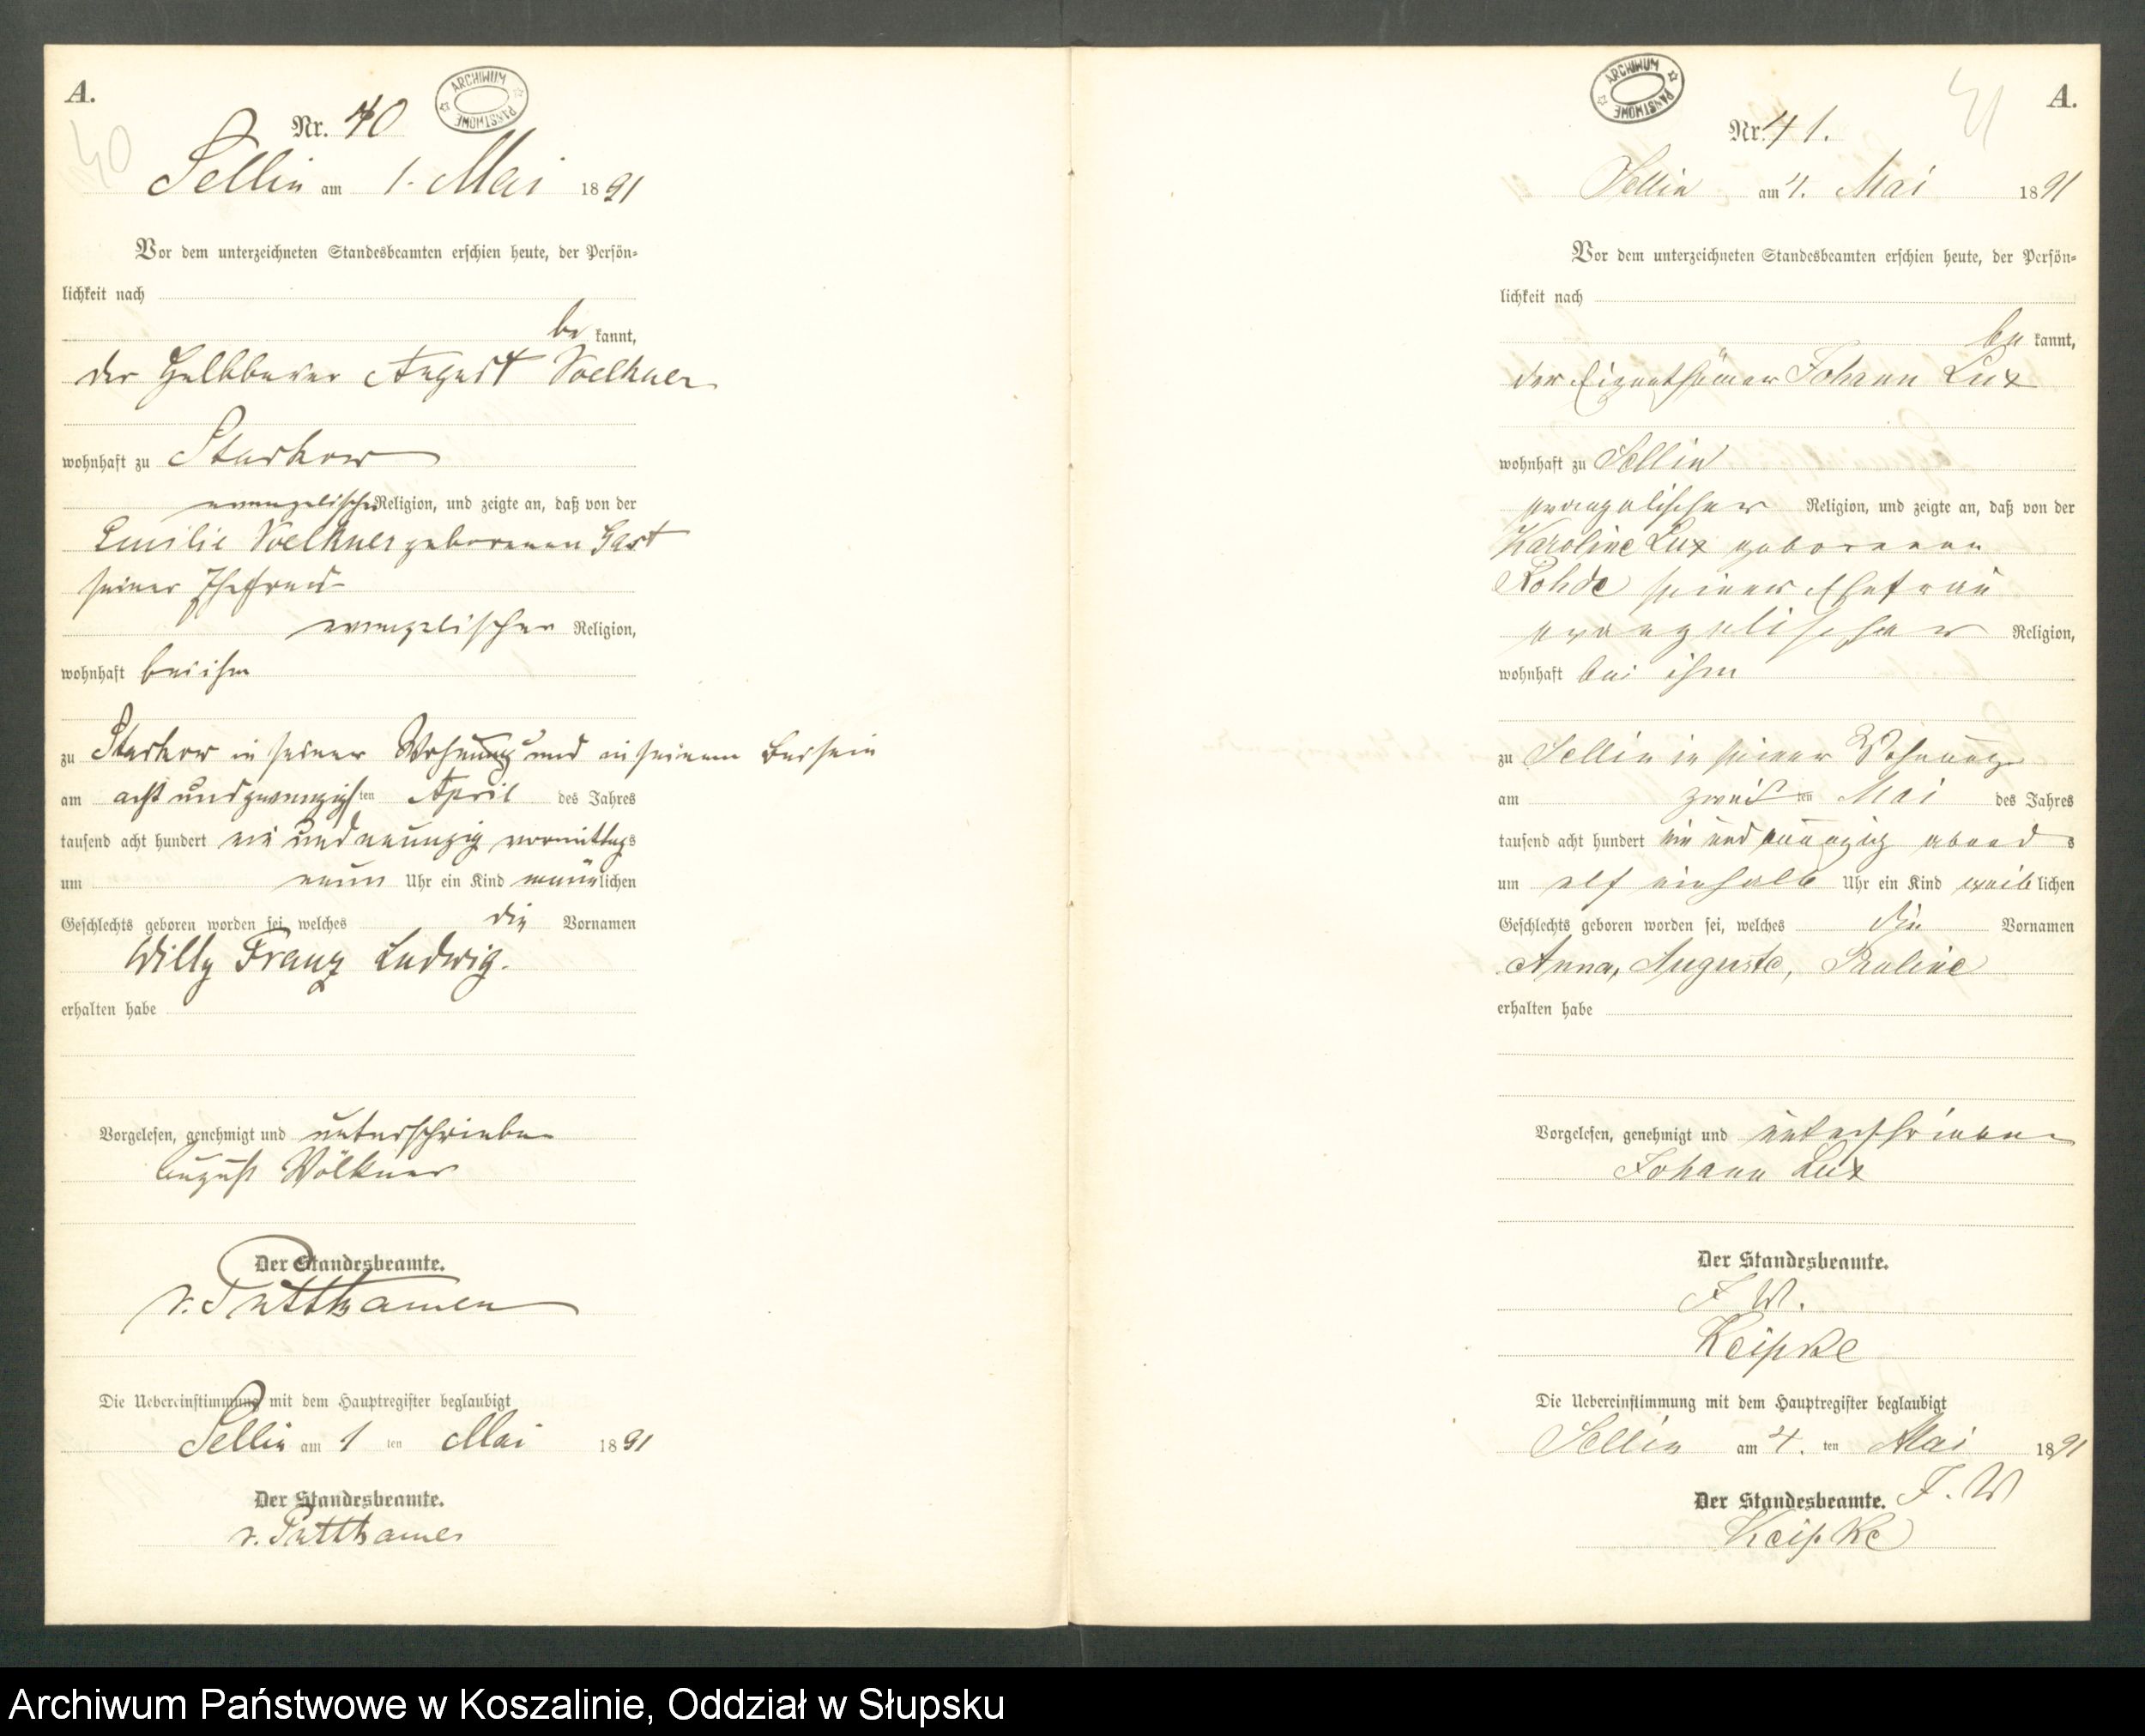 A.
ARCHIWUM PAŃSTWOWE
40
Nr. 40
Sellin am 1. Mai 1891
Vor dem unterzeichneten Standesbeamten erschien heute, der Persön-
lichkeit nach
be kannt,
der Halbbauer August Voelkner
wohnhaft zu Starkow
evangelischer Religion, und zeigte an, daß von der
Emilie Voelkner geborenen Gast
seiner Ehefrau
evangelischer Religion,
wohnhaft bei ihm
zu Starkow in seiner Wohnung und in seinem Beisein
am acht und zwanzigsten April des Jahres
tausend acht hundert ein und neunzig vormittags
um neun Uhr ein Kind männlichen
Geschlechts geboren worden sei, welches die Vornamen
Willy Franz Ludwig.
erhalten habe
Vorgelesen, genehmigt und unterschrieben
August Völkner
Der Standesbeamte.
v. Puttkamer
Die Uebereinstimmung mit dem Hauptregister beglaubigt
Sellin am 1 ten Mai 1891
Der Standesbeamte.
v. Puttkamer
A.
ARCHIWUM PAŃSTWOWE
41
Nr. 41.
Sellin am 4. Mai 1891
Vor dem unterzeichneten Standesbeamten erschien heute, der Persön-
lichkeit nach
be kannt,
der Eigenthümer Johann Lux
wohnhaft zu Sellin
evangelischer Religion, und zeigte an, daß von der
Karoline Lux geborenen
Rohde seiner Ehefrau
evangelischer Religion,
wohnhaft bei ihm
zu Sellin in seiner Wohnung
am zweiten Mai des Jahres
tausend acht hundert ein und neunzig abends
um elf einhalb Uhr ein Kind weiblichen
Geschlechts geboren worden sei, welches die Vornamen
Anna, Auguste, Pauline
erhalten habe
Vorgelesen, genehmigt und unterschrieben
Johann Lux
Der Standesbeamte.
I. W.
Keipke
Die Uebereinstimmung mit dem Hauptregister beglaubigt
Sellin am 4. ten Mai 1891
Der Standesbeamte. I. W
Keipke
Archiwum Państwowe w Koszalinie, Oddział w Słupsku